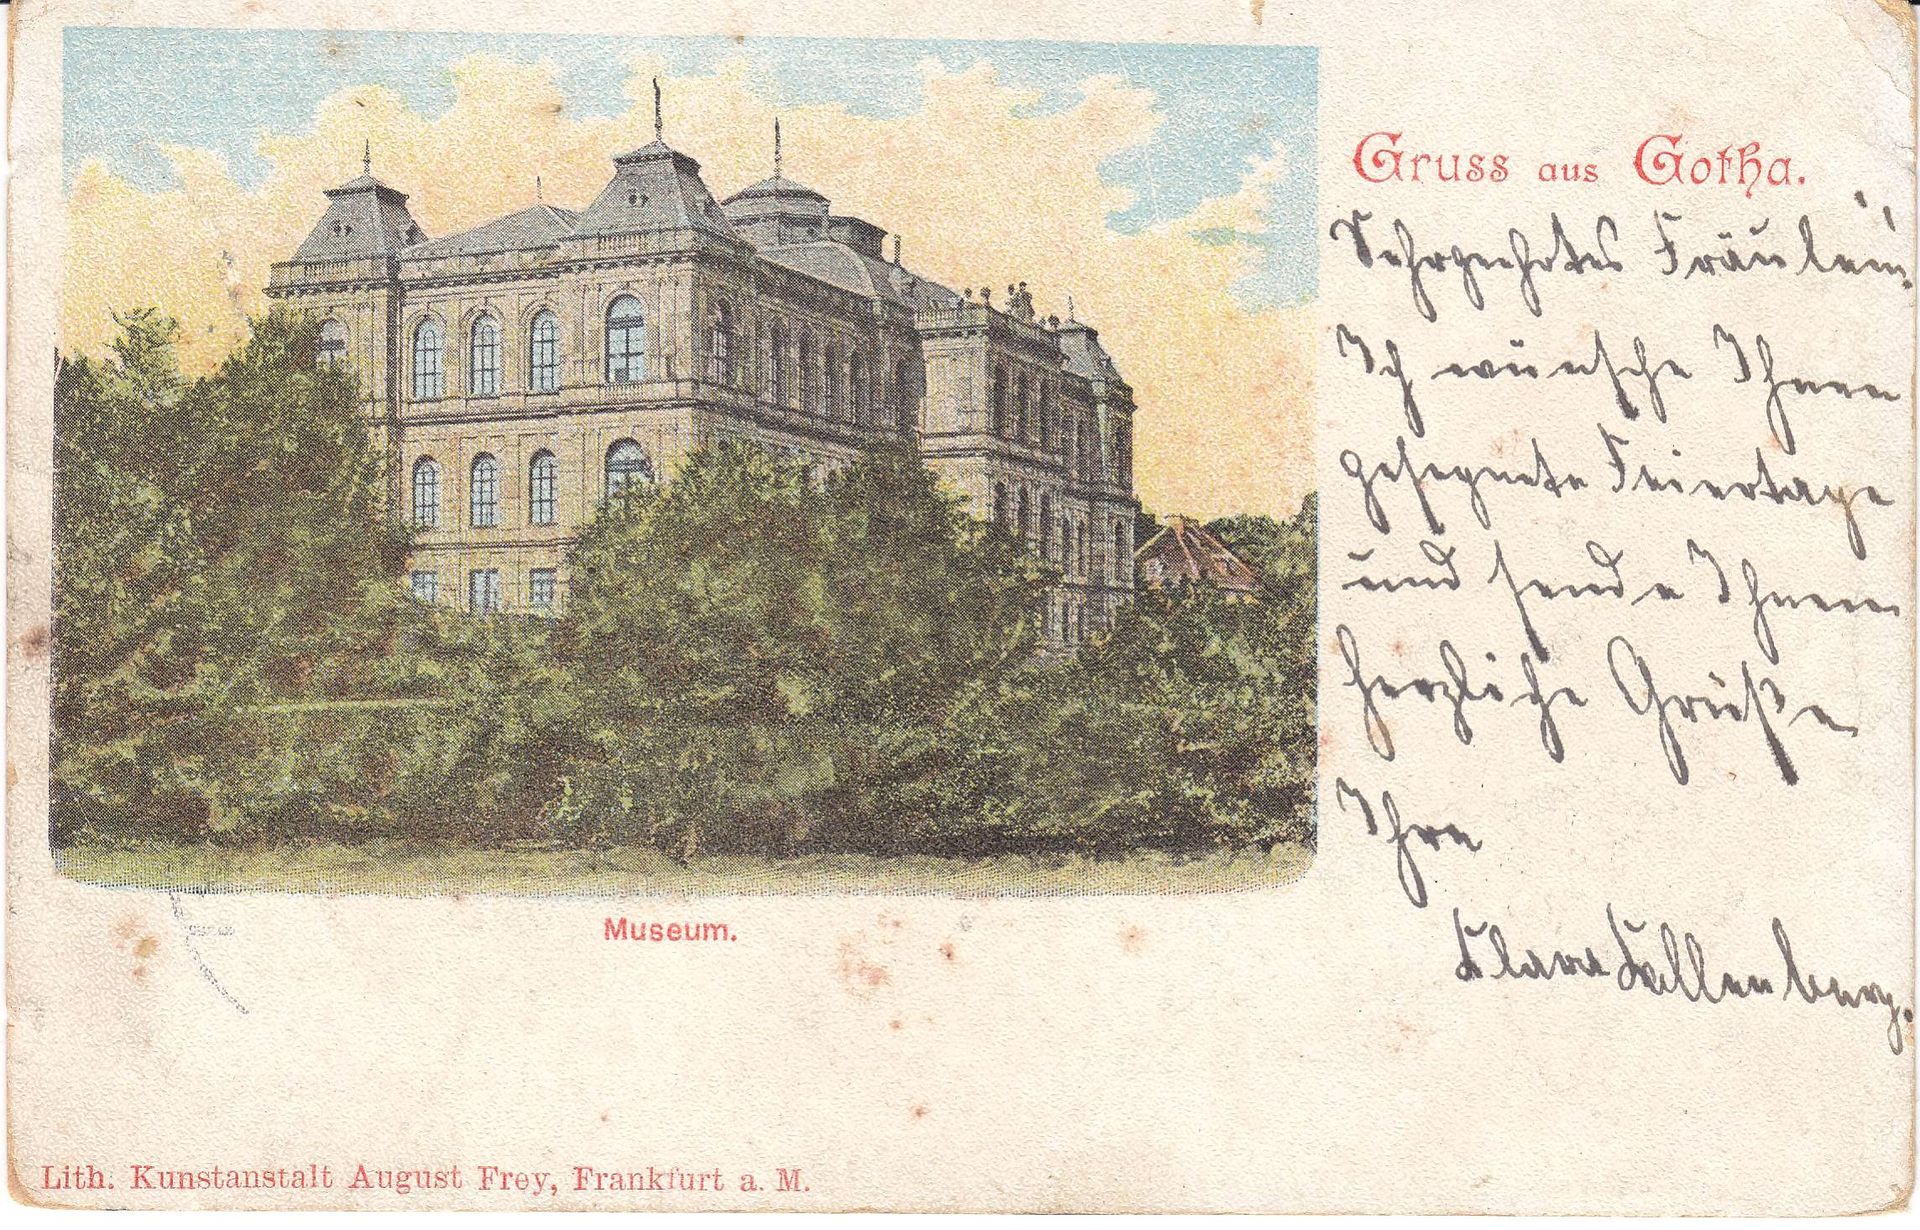 Gruss aus Gotha.
Sehrgeehrtes Fräulein!
Ich wünsche Ihnen
gesegnete Feiertage
und sende Ihnen
herzliche Grüße
Ihre
Klara
Museum.
Lith. Kunstanstalt August Frey, Frankfurt a. M.